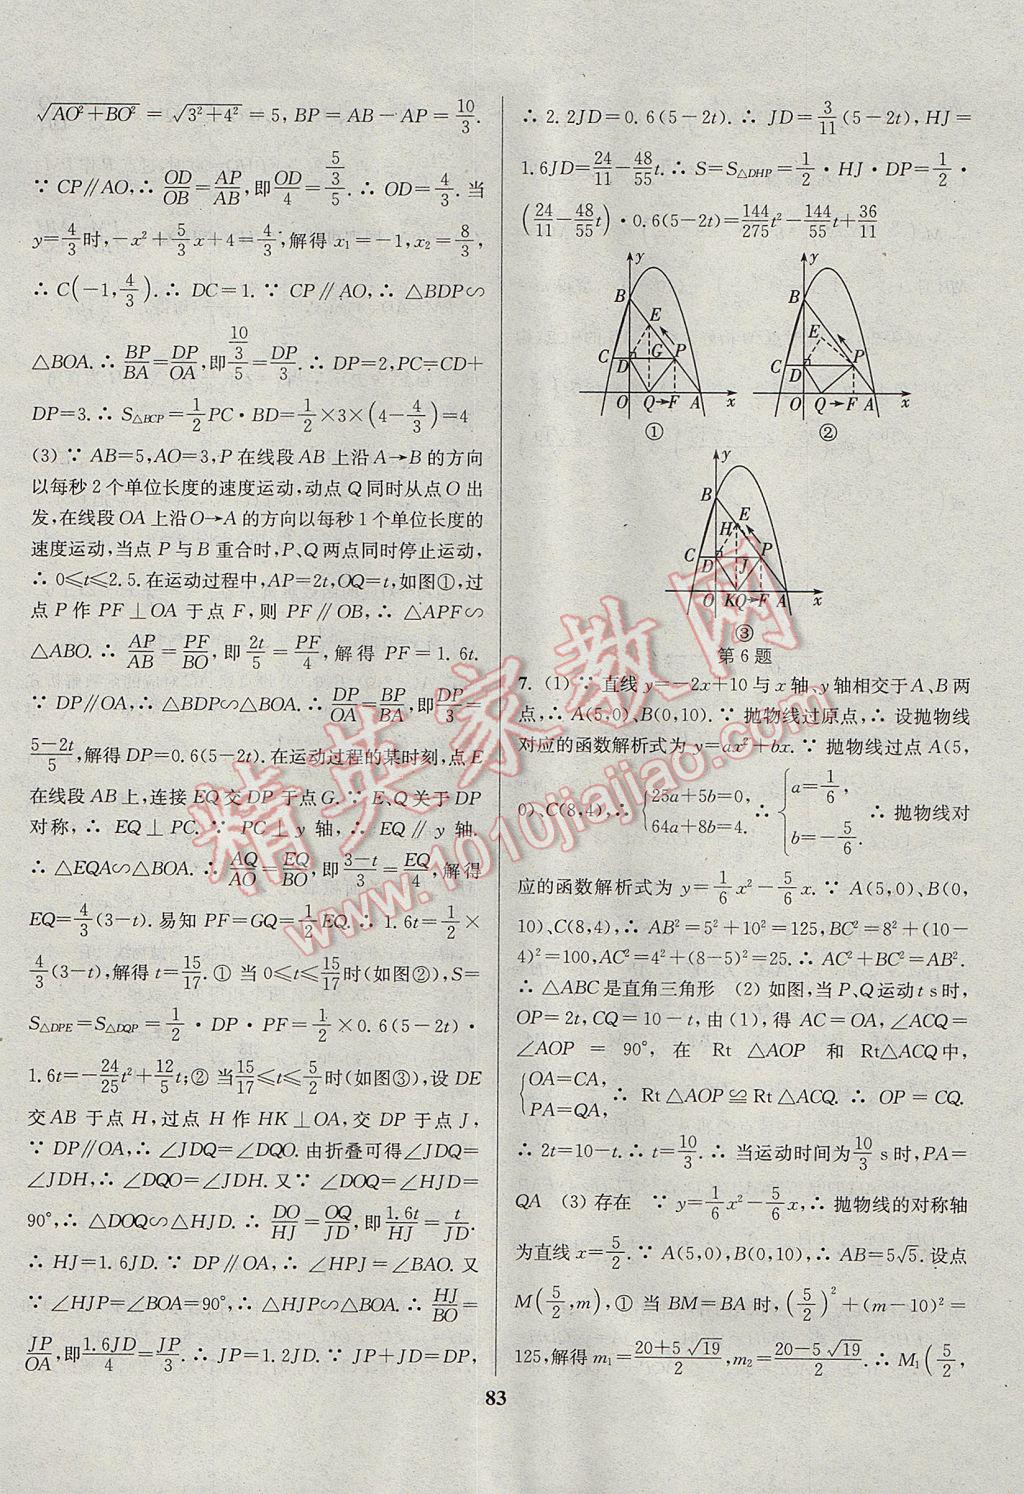 √(AO²+BO²) = √(3²+4²) = 5, BP = AB − AP = 10/3.
∵ CP∥AO, ∴ OD/OB = AP/AB, 即 OD/4 = (5/3)/5. ∴ OD = 4/3. 当
y = 4/3 时, −x² + 5/3x + 4 = 4/3, 解得 x₁ = −1, x₂ = 8/3,
∴ C(−1, 4/3). ∴ DC = 1. ∵ CP∥AO, ∴ △BDP∽
△BOA. ∴ BP/BA = DP/OA, 即 (10/3)/5 = DP/3. ∴ DP = 2, PC = CD +
DP = 3. ∴ S△BCP = 1/2 PC·BD = 1/2 × 3 × (4 − 4/3) = 4
(3) ∵ AB=5, AO=3, P 在线段 AB 上沿 A→B 的方向
以每秒 2 个单位长度的速度运动, 动点 Q 同时从点 O 出
发, 在线段 OA 上沿 O→A 的方向以每秒 1 个单位长度的
速度运动, 当点 P 与 B 重合时, P、Q 两点同时停止运动,
∴ 0≤t≤2.5. 在运动过程中, AP=2t, OQ=t, 如图①, 过
点 P 作 PF⊥OA 于点 F, 则 PF∥OB, ∴ △APF∽
△ABO. ∴ AP/AB = PF/BO, 即 2t/5 = PF/4, 解得 PF = 1.6t.
∵ DP∥OA, ∴ △BDP∽△BOA. ∴ DP/OA = BP/BA, 即 DP/3 =
(5−2t)/5, 解得 DP=0.6(5−2t). 在运动过程的某时刻, 点 E
在线段 AB 上, 连接 EQ 交 DP 于点 G. ∵ E、Q 关于 DP
对称, ∴ EQ⊥PC. ∵ PC⊥y 轴, ∴ EQ∥y 轴.
∴ △EQA∽△BOA. ∴ AQ/AO = EQ/BO, 即 (3−t)/3 = EQ/4, 解得
EQ = 4/3(3−t). 易知 PF = GQ = 1/2 EQ. ∴ 1.6t = 1/2 ×
4/3(3−t), 解得 t = 15/17. ① 当 0≤t≤15/17 时(如图②), S =
S△DPE = S△DQP = 1/2·DP·PF = 1/2 × 0.6(5−2t)·
1.6t = −24/25t² + 12/5t; ② 当 15/17≤t≤5/2 时(如图③), 设 DE
交 AB 于点 H, 过点 H 作 HK⊥OA, 交 DP 于点 J,
∵ DP∥OA, ∴ ∠JDQ=∠DQO. 由折叠可得∠JDQ=
∠JDH, ∴ ∠DQO=∠JDH. 又∵ ∠DOQ=∠HJD=
90°, ∴ △DOQ∽△HJD. ∴ DO/HJ = OQ/JD, 即 1.6t/HJ = t/JD.
∴ HJ=1.6JD. ∵ DP∥OA, ∴ ∠HPJ=∠BAO. 又
∵ ∠HJP=∠BOA=90°, ∴ △HJP∽△BOA. ∴ HJ/BO =
JP/OA, 即 1.6JD/4 = JP/3. ∴ JP=1.2JD. ∵ JP+JD=DP,
∴ 2.2JD=0.6(5−2t). ∴ JD = 3/11(5−2t), HJ =
1.6JD = 24/11 − 48/55t. ∴ S = S△DHP = 1/2·HJ·DP = 1/2·
(24/11 − 48/55t)·0.6(5−2t) = 144/275t² − 144/55t + 36/11
y
B
E
C
D
G
P
O
Q→F
A
x
①
y
B
E
C
D
P
O
Q→F
A
x
②
y
B
H
E
C
D
J
P
O
KQ→F
A
x
③
第 6 题
7. (1) ∵ 直线 y=−2x+10 与 x 轴、y 轴相交于 A、B 两
点, ∴ A(5,0)、B(0,10). ∵ 抛物线过原点, ∴ 设抛物线
对应的函数解析式为 y=ax²+bx. ∵ 抛物线过点 A(5,
0)、C(8,4), ∴ {25a+5b=0, 64a+8b=4. ∴ {a=1/6, b=−5/6. ∴ 抛物线对
应的函数解析式为 y = 1/6x² − 5/6x. ∵ A(5,0)、B(0,
10)、C(8,4), ∴ AB²=5²+10²=125, BC²=8²+(10−
4)²=100, AC²=4²+(8−5)²=25. ∴ AC²+BC²=AB².
∴ △ABC 是直角三角形 (2) 如图, 当 P、Q 运动 t s 时,
OP=2t, CQ=10−t, 由(1), 得 AC=OA, ∠ACQ=
∠AOP = 90°, 在 Rt △AOP 和 Rt△ACQ 中,
{OA=CA, PA=QA, ∴ Rt △AOP ≌ Rt △ACQ. ∴ OP = CQ.
∴ 2t=10−t. ∴ t=10/3. ∴ 当运动时间为 10/3 s 时, PA=
QA (3) 存在 ∵ y = 1/6x² − 5/6x, ∴ 抛物线的对称轴
为直线 x = 5/2. ∵ A(5,0)、B(0,10), ∴ AB=5√5. 设点
M(5/2, m), ① 当 BM=BA 时, (5/2)² + (m−10)² =
125, 解得 m₁ = (20+5√19)/2, m₂ = (20−5√19)/2. ∴ M₁(5/2,
83
精英家教网
www.1010jiajiao.com